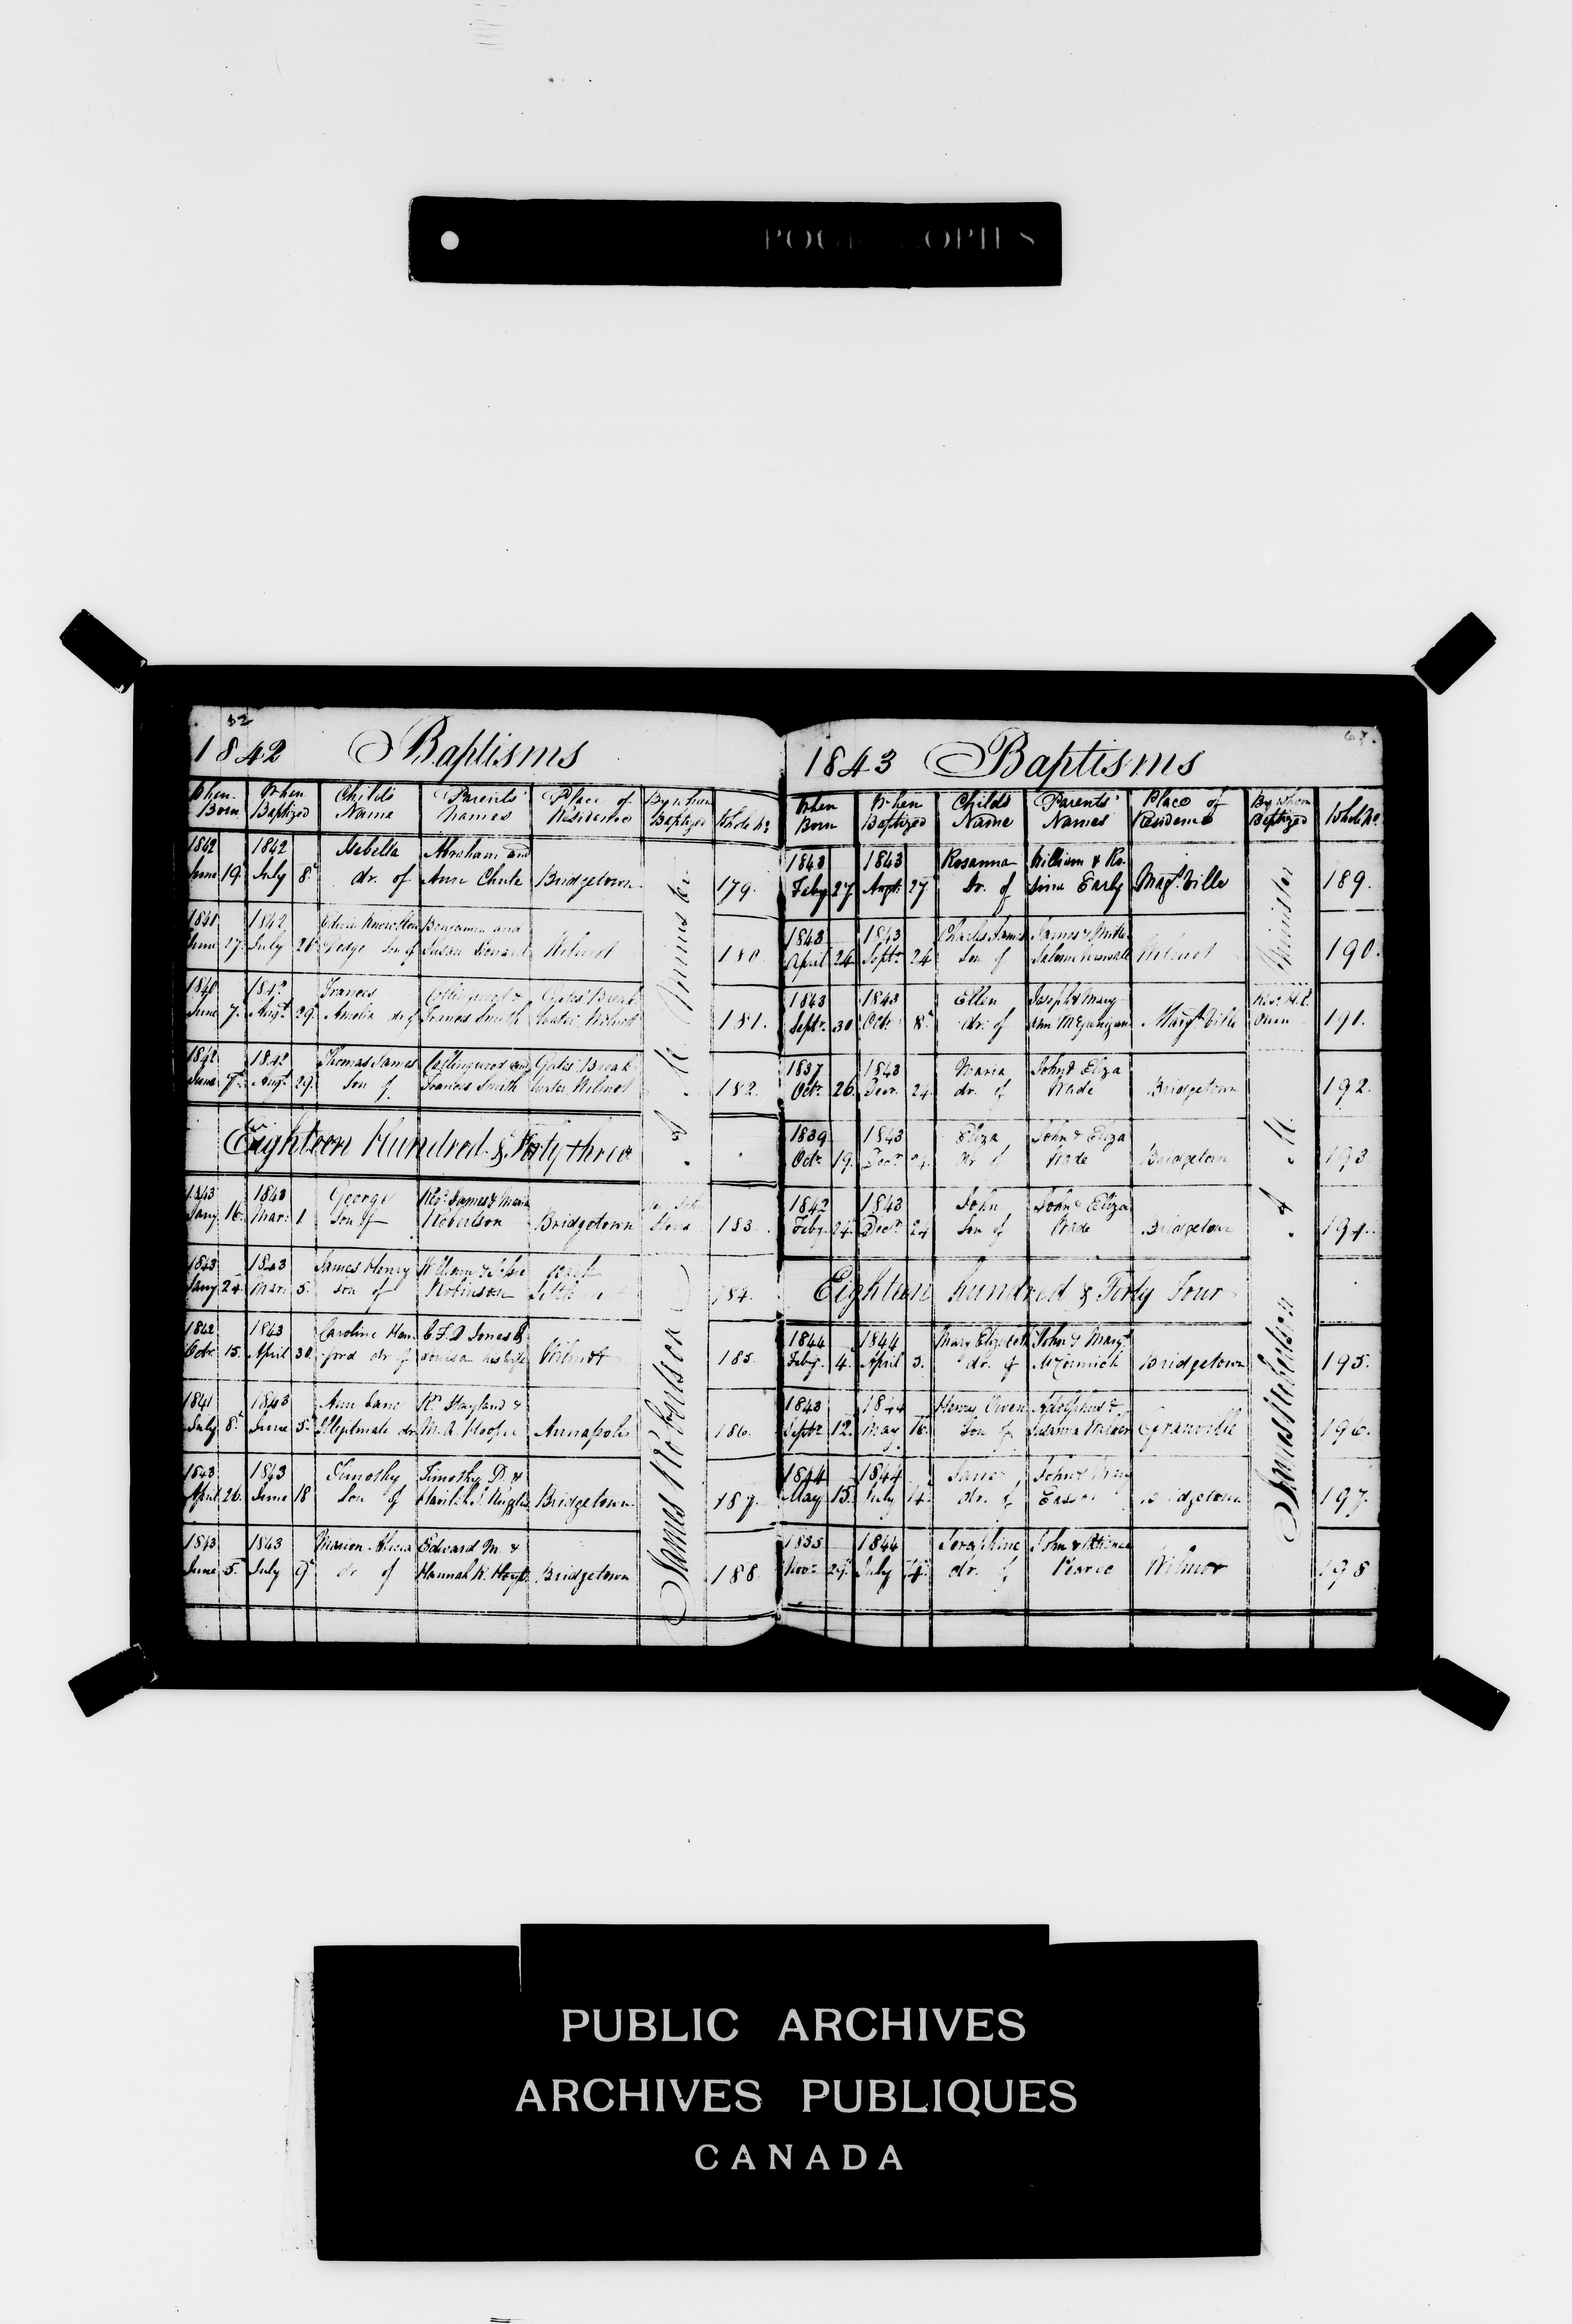 POOR COPIES
62
1842 Baptisms
When Born
When Baptized
Child's Name
Parents' Names
Place of Residence
By whom Baptized
Whole No.
1842 June 19 1842 July 8 Isabella dr. of Abraham and Ann Chute Bridgetown 179.
June 27 1842 July 26 son of Benjamin and Susan Wilmot 180
June 7 1842 Augt. 29 Frances Amelia dr. of Collingwood & Frances Smith Gates' Break water Wilmot 181.
1842 June 7 1842 Augt. 29 Thomas James Son of Collingwood and Frances Smith Gates' Break water Wilmot 182.
Eighteen Hundred & Forty three
1843 Jany. 16 1843 Mar. 1 George Son of Revd. James & Maria Robertson Bridgetown 183
1843 Jany 24 1843 Mar. 5 James Henry son of William & Robinson 184.
1842 Octr. 15. 1843 April 30 Caroline dr of C. F. D Jones & Louisa his wife Wilmot 185.
1841 July 8 1843 June 5 Ann Jane Illegitimate dr. M. A. Hooper Annapolis 186.
1843 April 26. 1843 June 18 Timothy Son of Timothy D. & Ruggles Bridgetown 187.
1843 June 5. 1843 July 9 Marion Alicia dr of Edward M. & Hannah Bridgetown 188.
James Robertson A. M. Minister
1843 Baptisms
When Born
When Baptized
Childs Name
Parents' Names
Place of Residence
By whom Baptized
Whole No.
1843 Feby 27. 1843 Augt. 27 Rosanna Dr. of William & Ro- sina Early Magt. Ville 189.
1843 April 24 1843 Septr. 24 Charles James Son of James & Wilmot 190.
1843 Septr. 30 1843 Octr. 8 Ellen dr. of Joseph & Mary Ann Margt. Ville Revd. H. L. Owen 191.
1837 Octr. 26. 1843 Decr. 24. Maria dr. of John & Eliza Wade Bridgetown 192.
1839 Octr. 19. 1843 Decr. 24. Eliza dr of John & Eliza Wade Bridgetown 193
1842 Feby. 24. 1843 Decr. 24 John Son of John & Eliza Wade Bridgetown 194.
Eighteen hundred & Forty Four
1844 Feby. 4. 1844 April 3. Mary Elizabeth dr. of John & Margt. McCormick Bridgetown 195.
1843 Septr. 12. 1844 May 16. Henry Owen Son of Adolphus & Susanna Granville 196.
1844 May 15. 1844 July 14. Jane dr. of John & Bridgetown 197.
1835 Novr. 29. 1844 July 14. Seraphine dr. of John & Pearce Wilmot 198
James Robertson A. M. Minister
PUBLIC ARCHIVES
ARCHIVES PUBLIQUES
CANADA